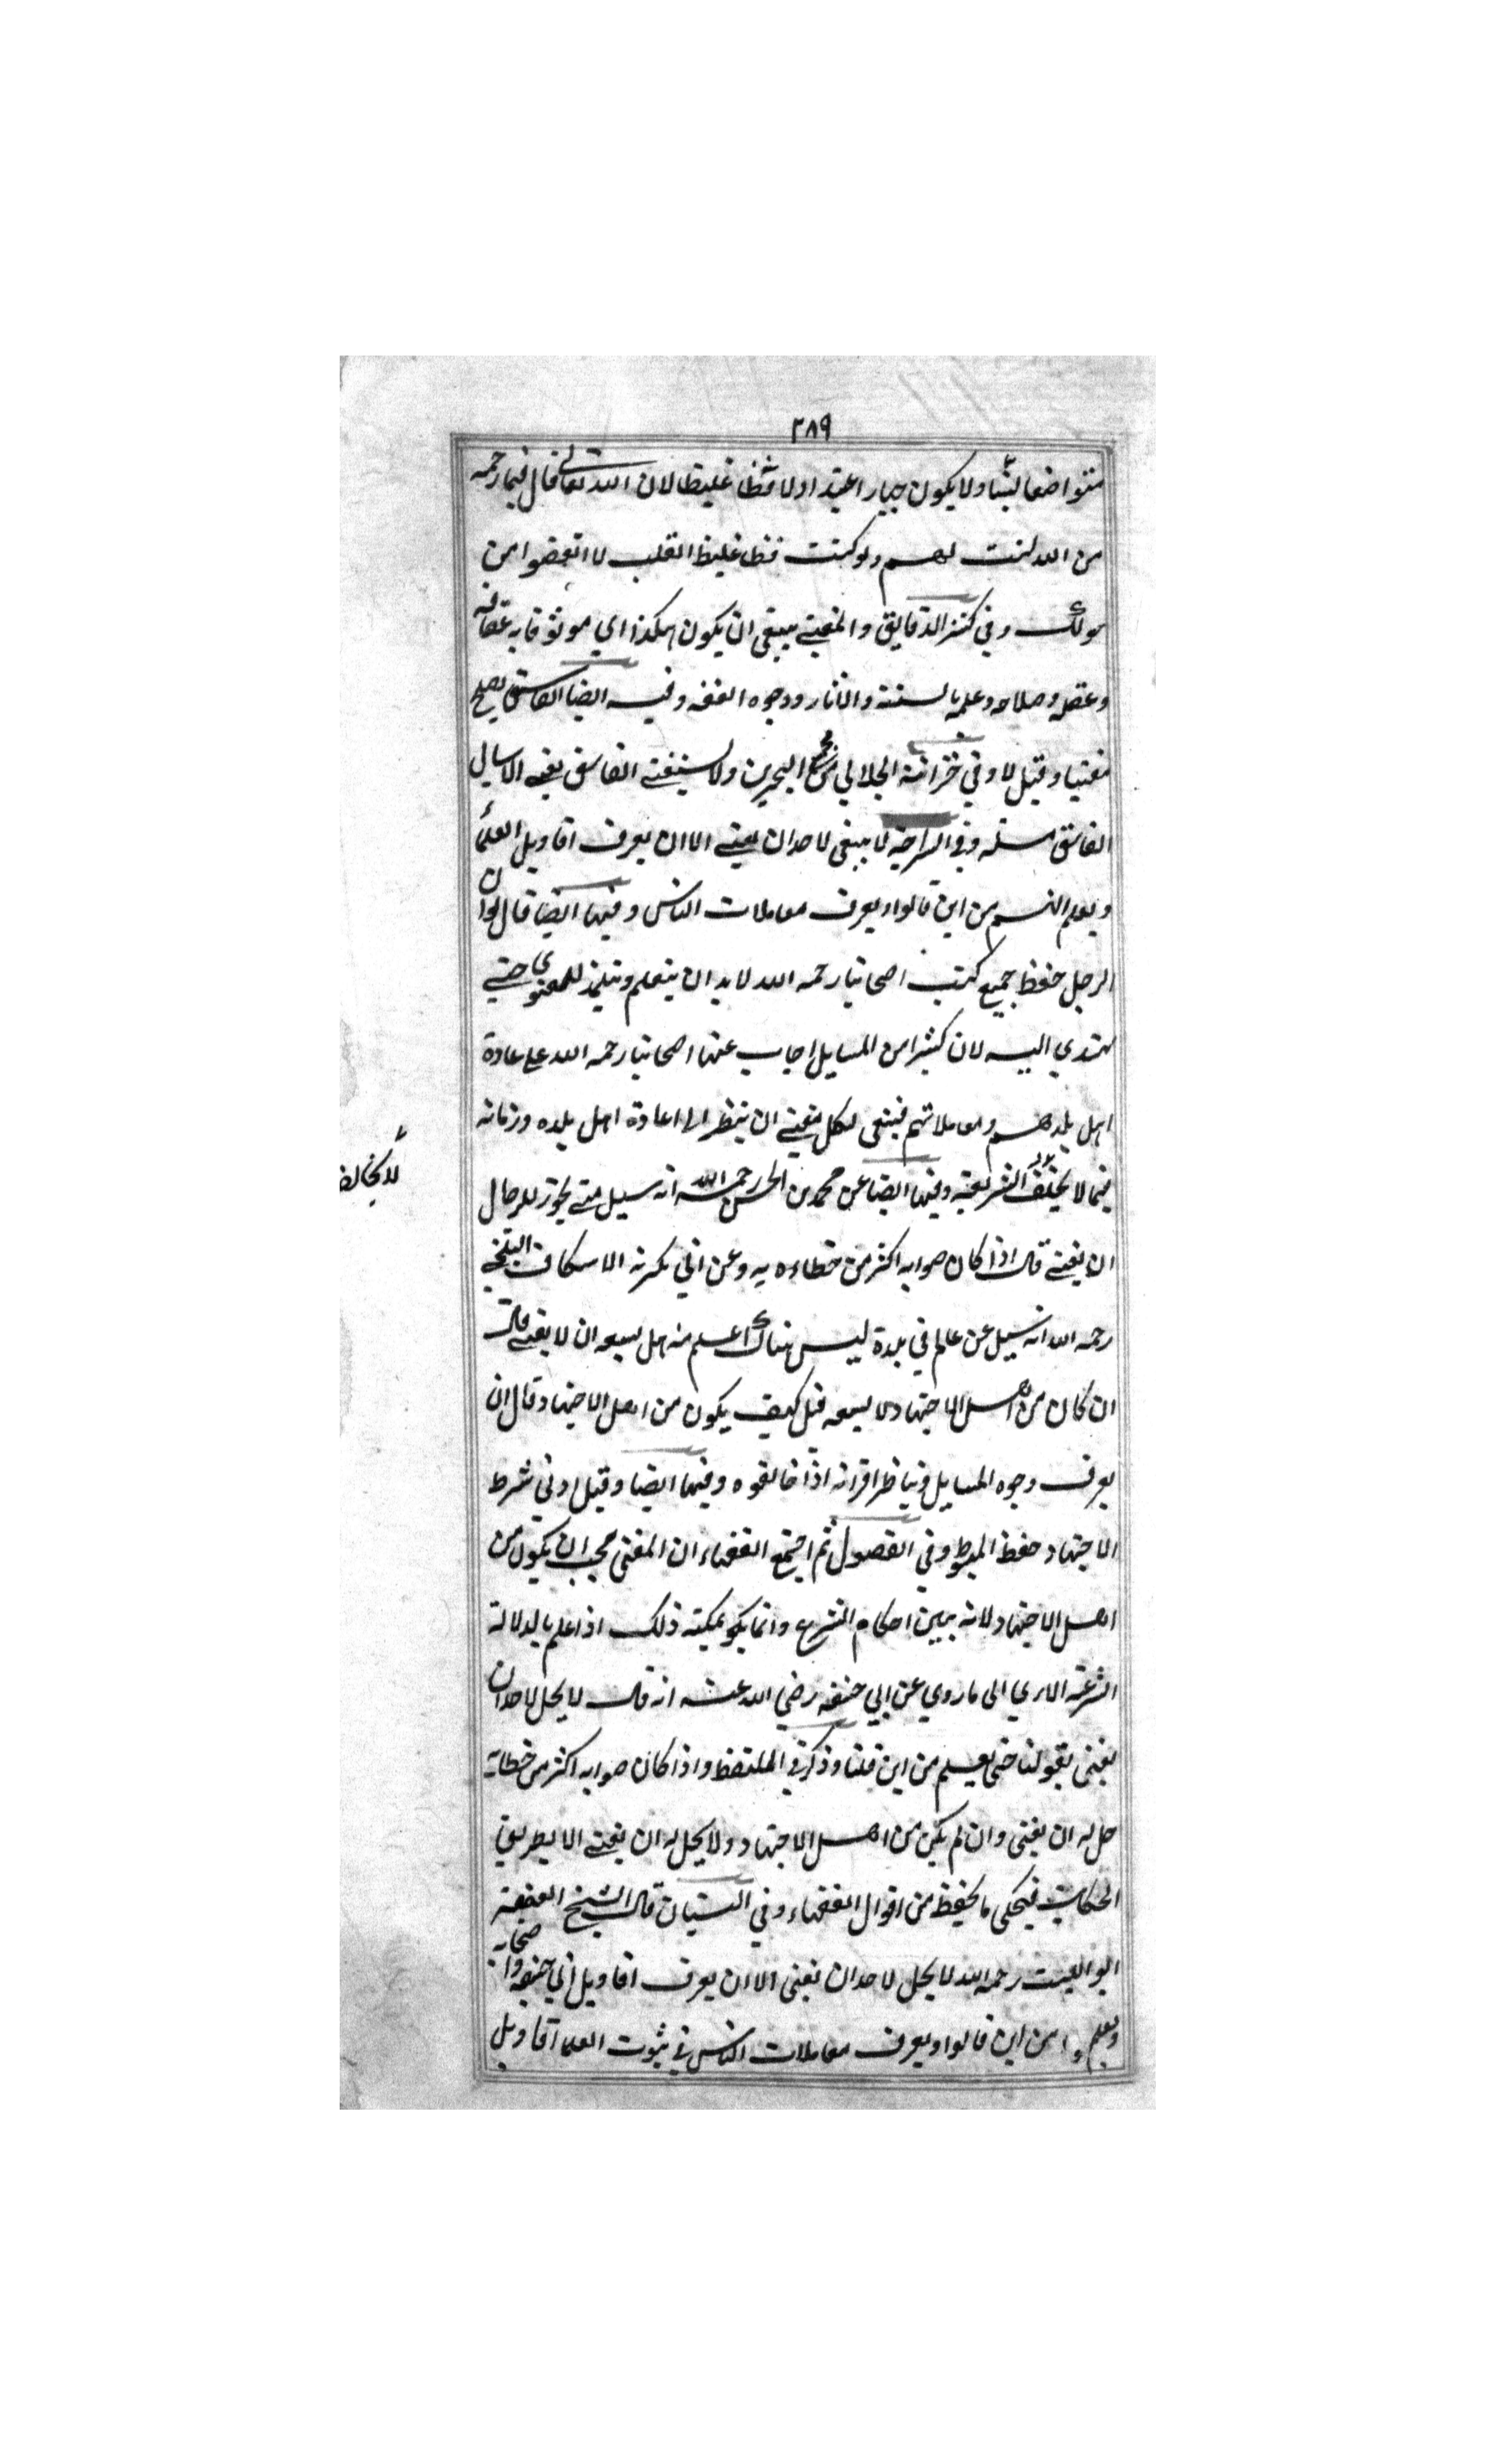 ٣٨٩
متواضعا لينا ولا يكون جبارا عنيدا ولا فظا غليظا لان الله تعالى قال فبما رحمة
من الله لنت لهم ولو كنت فظا غليظ القلب لا انفضوا من
حولك وفي كنز الدقايق والمفتي ينبغي ان يكون هكذا اي موثوقا به عفافه
وعقله وصلاحه وعلمه بالسنة والاثار ووجوه الفقه وفيه ايضا الفاسق يصلح
مفتيا وقيل لا وفي خزانة الجلالي من مجمع البحرين ولا يستفتي الفاسق يعني لا يسال
الفاسق مسئلة وفي السراجية لا ينبغي لاحد ان يفتي الا ان يعرف اقاويل العلماء
ويعلم انهم من اين قالوا ويعرف معاملات الناس وفيها ايضا قال لو ان
الرجل حفظ جميع كتب اصحابنا رحمه الله لا بد ان يتعلم ويتلمذ للفتوى حتى
يهتدي اليه لان كثيرا من المسايل اجاب عنها اصحابنا رحمه الله على عادة
اهل بلدهم ومعاملاتهم فينبغي لكل مفتي ان ينظر الى اعادة اهل بلده وزمانه
فيما لا يخالف الشريعة وفيها ايضا عن محمد بن الحسن رحمه الله انه سيل متى يجوز للرجال
لا يخالف
ان يفتي قال اذا كان صوابه اكثر من خطاءه به وعن ابي بكر نه الاسكاف البلخي
رحمه الله انه سيل عن عالم في بلدة ليس هناك اعلم منه هل يسعه ان لا يفتي قال
ان كان من اهل الاجتهاد لا يسعه قيل كيف يكون من اهل الاجتهاد قال ان
يعرف وجوه المسايل ويناظر اقرانه اذا خالفوه وفيها ايضا وقيل ادنى شرط
الاجتهاد حفظ المبسوط وفي الفصول ثم اجتمع الفقهاء ان المفتي يجب ان يكون من
اهل الاجتهاد لانه يبين احكام الشرع وانما يكو يمكنه ذلك اذا علم بالدلالة
الشرعية الا يري الى ما روي عن ابي حنيفة رضي الله عنه انه قال لا يحل لاحد ان
يفتي بقولنا حتى يعلم من اين قلنا وذكر في الملتقط واذا كان صوابه اكثر من خطايه
حل له ان يفتي وان لم يكن من اهل الاجتهاد ولا يحل له ان يفتي الا بطريق
الحكاية فيحكي ما يحفظ من اقوال الفقهاء وفي البستان قال الشيخ الفقيه
ابو الليث رحمه الله لا يحل لاحد ان يفتي الا ان يعرف اقاويل ابي حنيفة واصحابه
ويعلم من اين قالوا ويعرف معاملات الناس في ثبوت العلما اقاويل